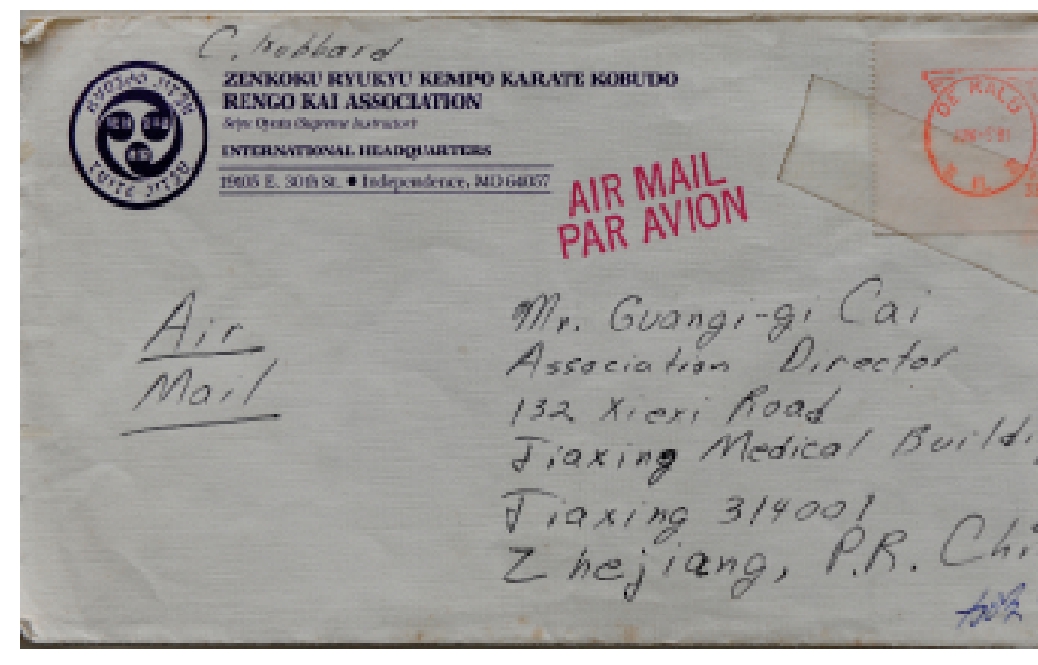 C. Hubbard
ZENKOKU RYUKYU KEMPO KARATE KOBUDO
RENGO KAI ASSOCIATION
Seiyu Oyata (Supreme Instructor)
INTERNATIONAL HEADQUARTERS
19105 E. 30th St. ● Independence, MO 64057
AIR MAIL
PAR AVION
DE KALB
Air
Mail
Mr. Guangi-gi Cai
Association Director
132 Xiexi Road
Jiaxing Medical Buildi
Jiaxing 314001
Zhejiang, P.R. Chi